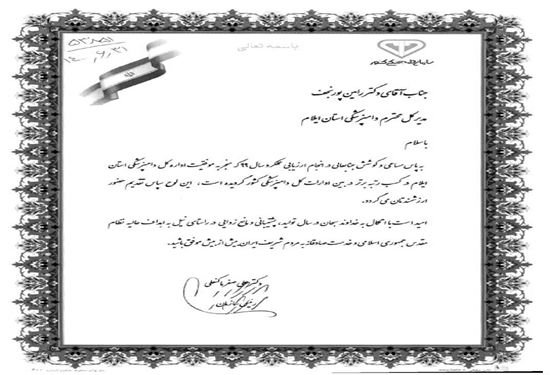 باسمه تعالی
سازمان دامپزشکی کشور
جناب آقای دکتر رامین پورنجف
مدیر کل محترم دامپزشکی استان ایلام
با سلام
به پاس مساعی و کوشش جنابعالی در انجام ارزیابی عملکرد سال ۹۹ که منجر به موفقیت اداره کل دامپزشکی استان
ایلام در کسب رتبه برتر در بین ادارات کل دامپزشکی کشور گردیده است، این لوح سپاس تقدیم حضور
ارزشمندتان می گردد.
امید است با اتکال به خداوند سبحان در سال تولید، پشتیبانی و مانع زدایی در راستای نیل به اهداف عالیه نظام
مقدس جمهوری اسلامی و خدمت صادقانه به مردم شریف ایران بیش از پیش موفق باشید.
دکتر علی صفر ماکنعلی